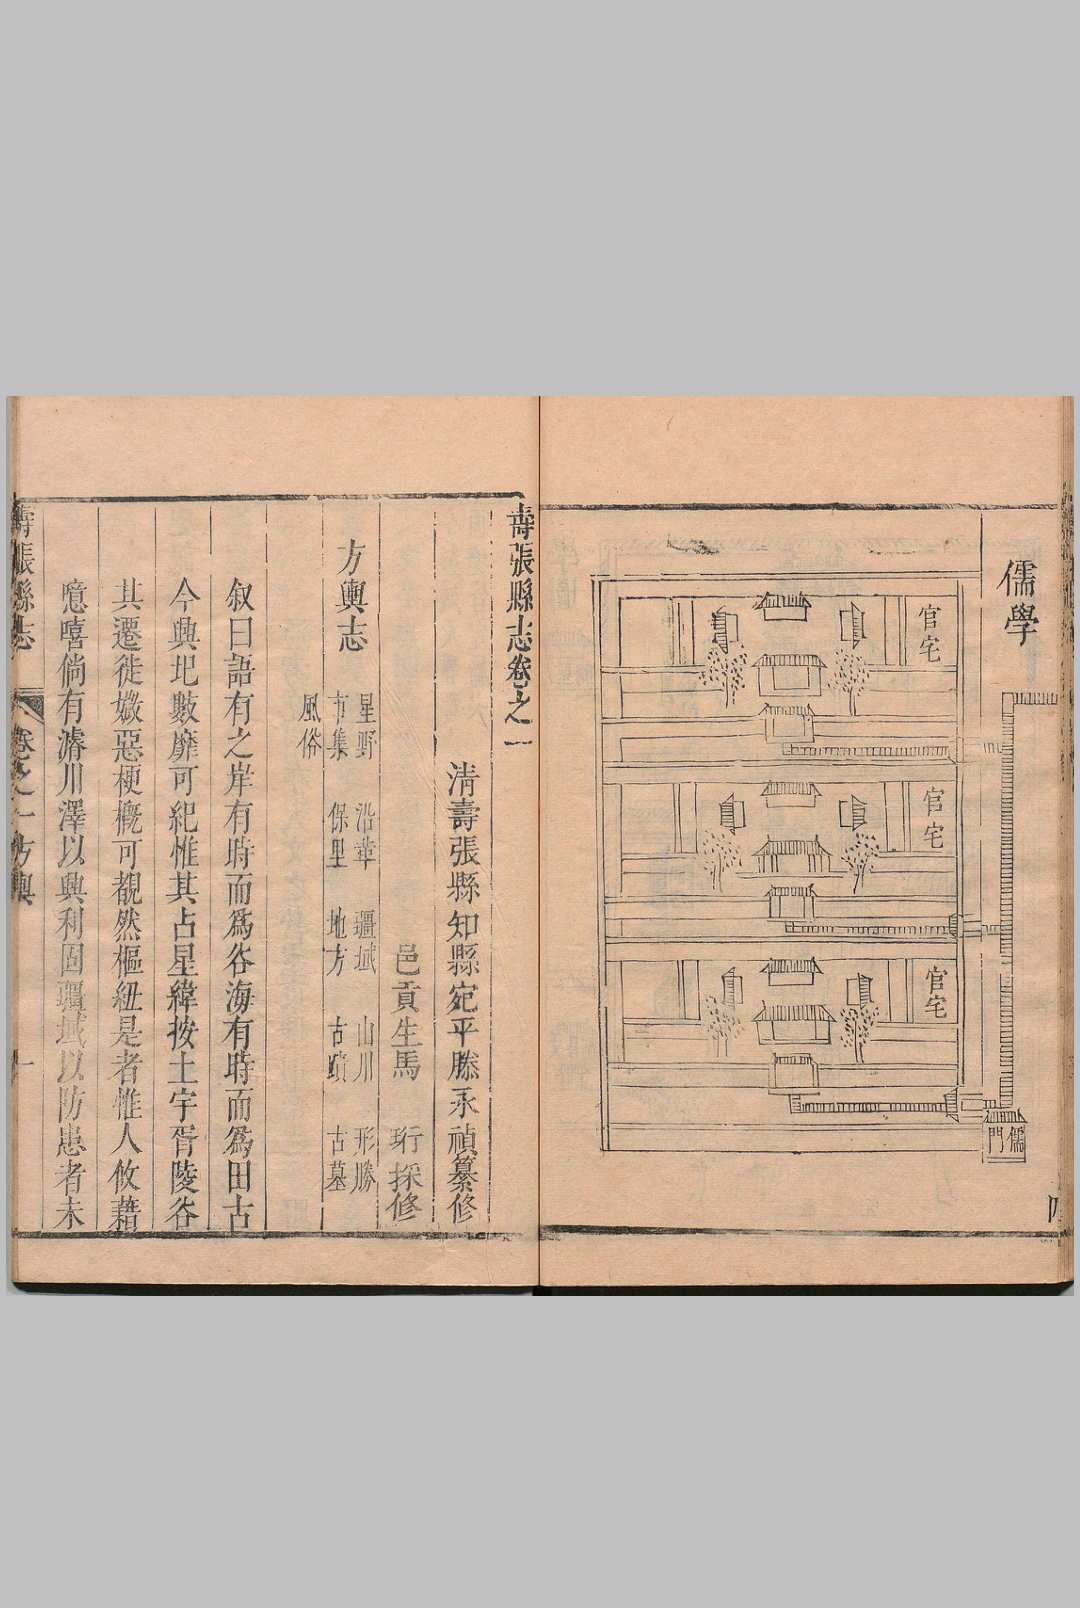 儒學
官宅
官宅
官宅
儒門
四
壽張縣志卷之一
清壽張縣知縣宛平滕永禎纂修
邑貢生馬 珩採修
方輿志
星野 沿革 疆域 山川 形勝
市集 保里 地方 古蹟 古墓
風俗
叙曰語有之岸有時而爲谷海有時而爲田古
今興圯數靡可紀惟其占星緯按土宇胥陵谷
其遷徙媺惡梗概可覩然樞紐是者惟人攸藉
噫嘻倘有濬川澤以興利固疆域以防患者未
壽張縣志 卷之一 方輿 一